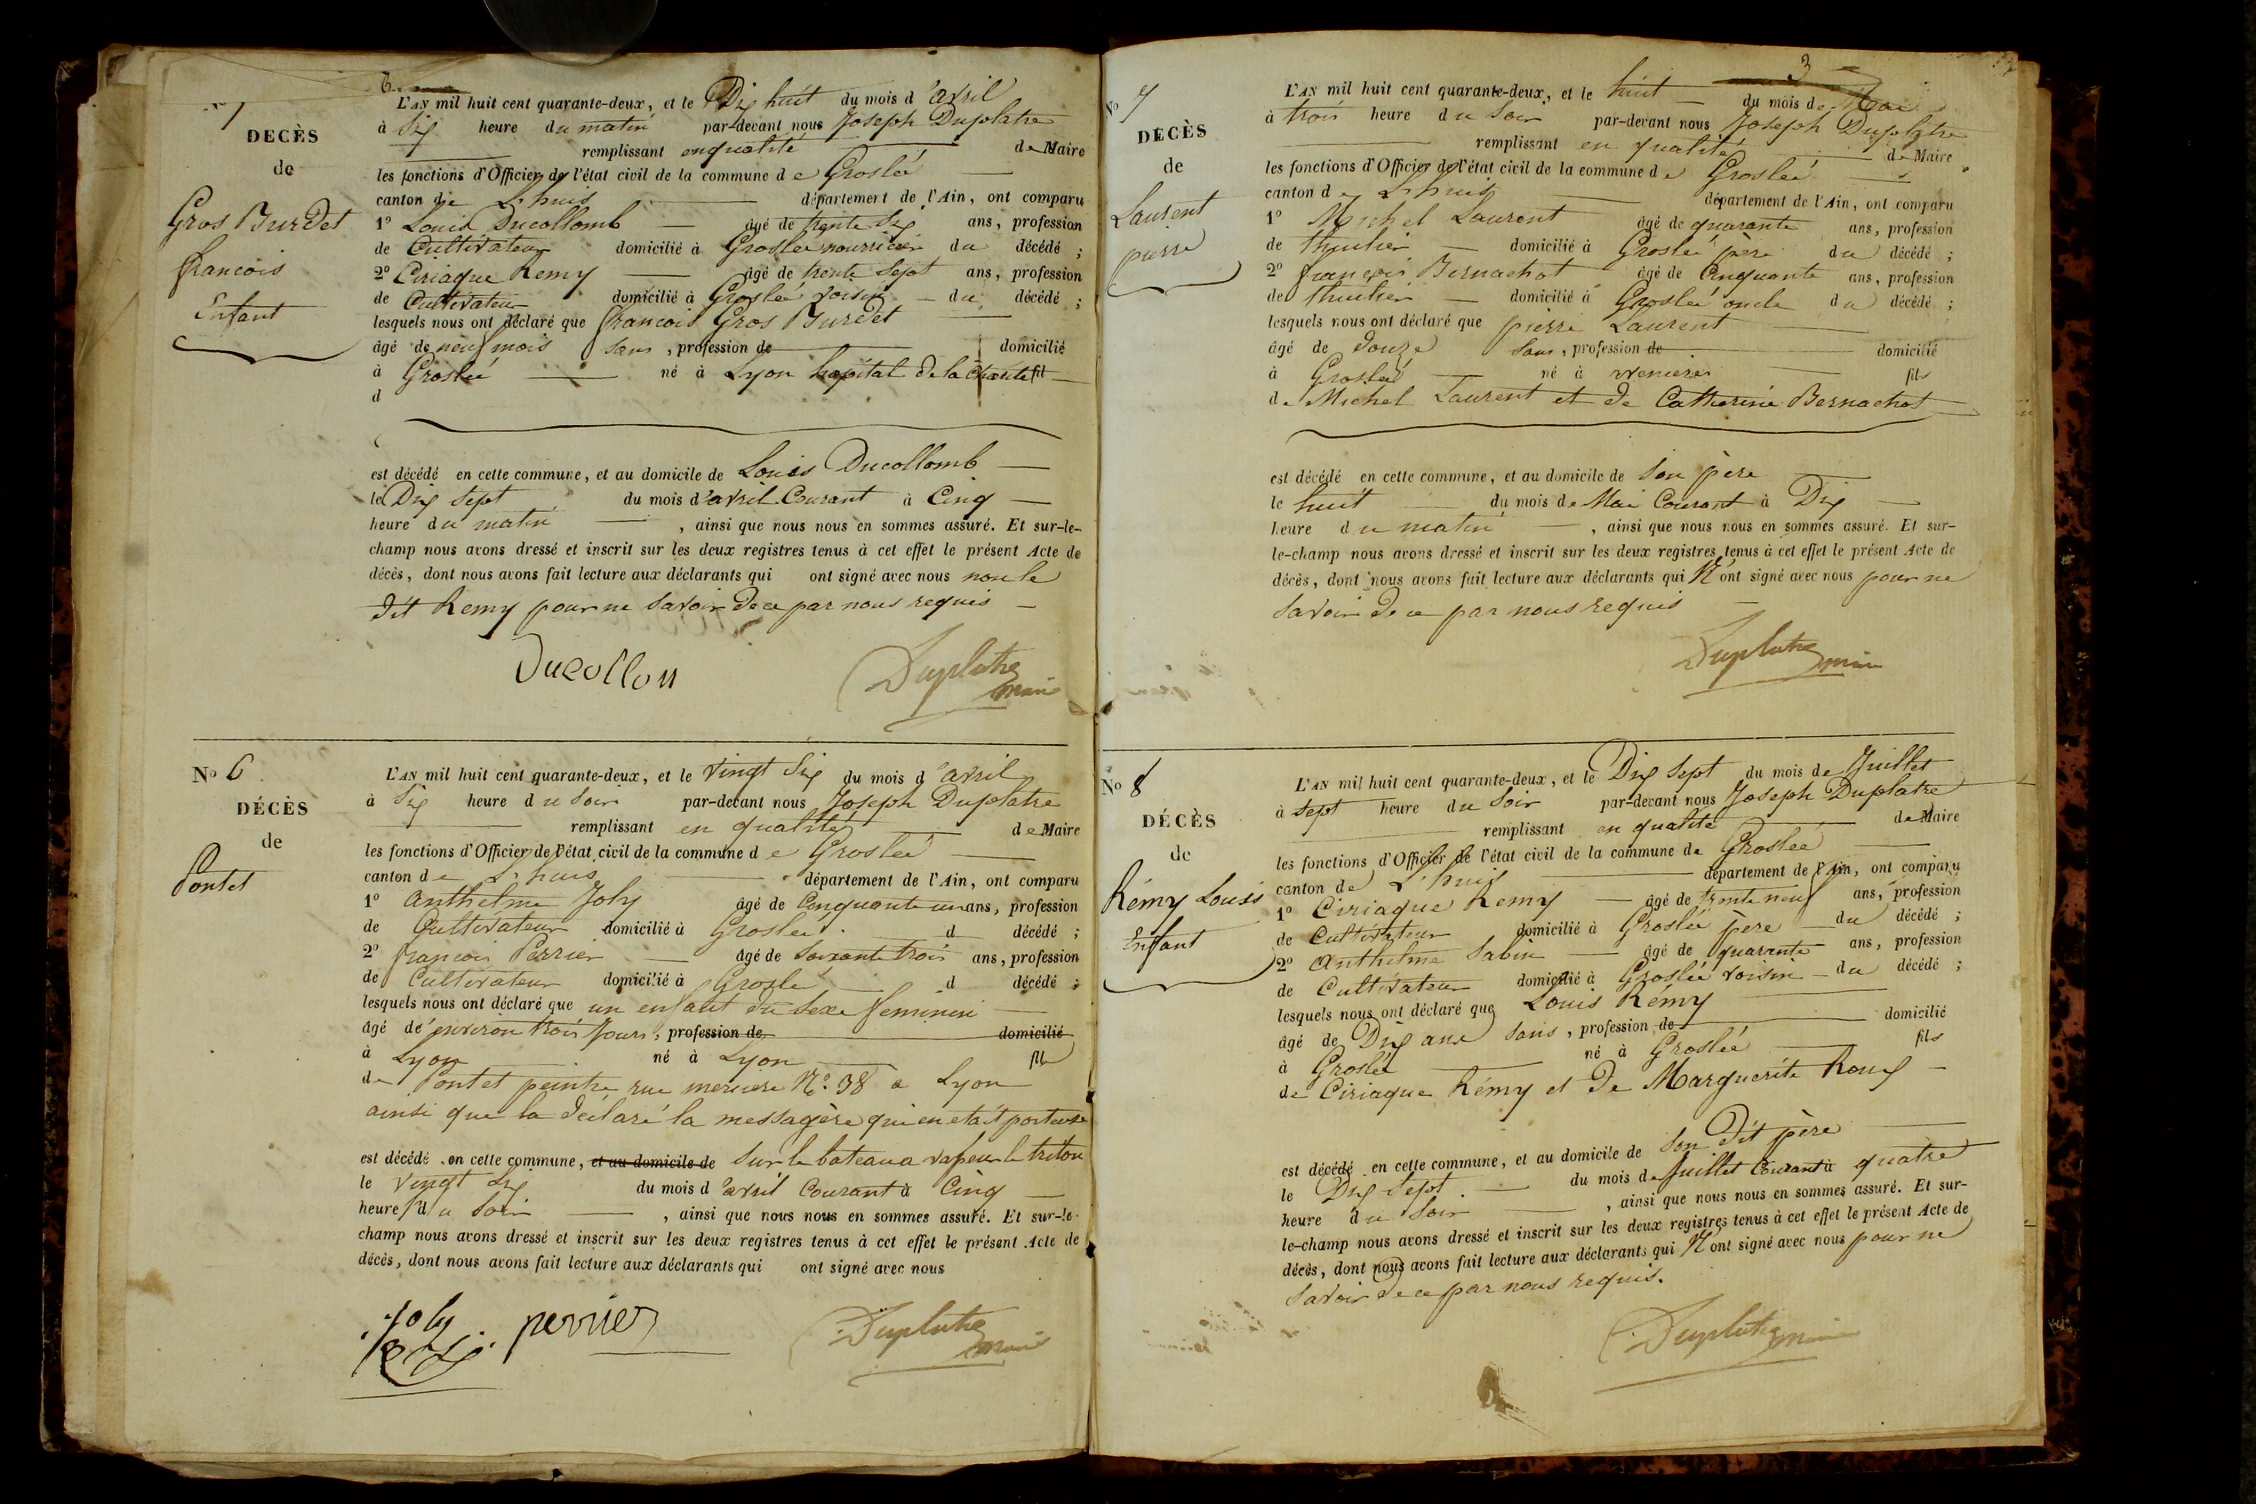 DECÈS
de
Gros Burdet
francois
Enfant
L'AN mil huit cent quarante-deux, et le Dix huit du mois d'avril
à Six heure du matin par-devant nous Joseph Duplatre
remplissant en qualité de Maire
les fonctions d'Officier de l'état civil de la commune de Groslée
canton de L'huis département de l'Ain, ont comparu
1º Louis Ducollomb âgé de trente Six ans, profession
de Cultivateur domicilié à Groslée nourricier du décédé ;
2º Ciriaque Remy âgé de trente Sept ans, profession
de Cultivateur domicilié à Groslée voisin du décédé ;
lesquels nous ont déclaré que francois Gros Burdet
âgé de neuf mois Sans, profession de domicilié
à Groslée né à Lyon hopital de la Charité fil
d
est décédé en cette commune, et au domicile de Louis Ducollomb
le Dix Sept du mois d'avril Courant à Cinq
heure du matin , ainsi que nous nous en sommes assuré. Et sur-le-
champ nous avons dressé et inscrit sur les deux registres tenus à cet effet le présent Acte de
décès, dont nous avons fait lecture aux déclarants qui ont signé avec nous non le
dit Remy pour ne Savoir de ce par nous requis
Ducollon
Duplatre
maire
Nº 6
DÉCÈS
de
Pontet
L'AN mil huit cent quarante-deux, et le vingt Six du mois d'avril
à Six heure du Soir par-devant nous Joseph Duplatre
remplissant en qualité de Maire
les fonctions d'Officier de l'état civil de la commune de Groslée
canton de L'huis département de l'Ain, ont comparu
1º anthelme Joly âgé de Cinquante un ans, profession
de Cultivateur domicilié à Groslée d décédé ;
2º francois Perrier âgé de Soixante trois ans, profession
de Cultivateur domicilié à Groslée d décédé ;
lesquels nous ont déclaré que un enfant du Sexe feminin
âgé de environ trois Jours, profession de domicilié
à Lyon né à Lyon fille
de Pontet peintre rue merciere Nº 38 a Lyon
ainsi que la déclaré la messagère qui en etait porteuse
est décédé en cette commune, et au domicile de Sur le bateau a vapeur le triton
le vingt Six du mois d'avril Courant à Cinq
heure du Soir , ainsi que nous nous en sommes assuré. Et sur-le-
champ nous avons dressé et inscrit sur les deux registres tenus à cet effet le présent Acte de
décès, dont nous avons fait lecture aux déclarants qui ont signé avec nous
Joly perrier
Duplatre
maire
3
Nº 7
DÉCÈS
de
Laurent
pierre
L'AN mil huit cent quarante-deux, et le huit du mois de Mai
à trois heure du Soir par-devant nous Joseph Duplatre
remplissant en qualité de Maire
les fonctions d'Officier de l'état civil de la commune de Groslée
canton de L'huis département de l'Ain, ont comparu
1º Michel Laurent âgé de quarante ans, profession
de thuilier domicilié à Groslée père du décédé ;
2º françois Bernachot âgé de Cinquante ans, profession
de thuilier domicilié à Groslée oncle du décédé ;
lesquels nous ont déclaré que pierre Laurent
âgé de Douze Sans, profession de domicilié
à Groslée né à fils
de Michel Laurent et de Catherine Bernachot
est décédé en cette commune, et au domicile de Son père
le huit du mois de Mai Courant à Dix
heure du matin , ainsi que nous nous en sommes assuré. Et sur-
le-champ nous avons dressé et inscrit sur les deux registres tenus à cet effet le présent Acte de
décès, dont nous avons fait lecture aux déclarants qui N'ont signé avec nous pour ne
Savoir de ce par nous requis
Duplatre
maire
Nº 8
DÉCÈS
de
Rémy Louis
Enfant
L'AN mil huit cent quarante-deux, et le Dix Sept du mois de Juillet
à Sept heure du Soir par-devant nous Joseph Duplatre
remplissant en qualité de Maire
les fonctions d'Officier de l'état civil de la commune de Groslée
canton de L'huis département de l'Ain, ont comparu
1º Ciriaque Remy âgé de trente neuf ans, profession
de Cultivateur domicilié à Groslée père du décédé ;
2º anthelme Sabin âgé de quarante ans, profession
de Cultivateur domicilié à Groslée voisin du décédé ;
lesquels nous ont déclaré que Louis Rémy
âgé de Dix ans Sans, profession de domicilié
à Groslée né à Groslée fils
de Ciriaque Rémy et de Marguerite Roux
est décédé en cette commune, et au domicile de Son Dit père
le Dix Sept du mois de Juillet Courant à quatre
heure du Soir , ainsi que nous nous en sommes assuré. Et sur-
le-champ nous avons dressé et inscrit sur les deux registres tenus à cet effet le présent Acte de
décès, dont nous avons fait lecture aux déclarants qui N'ont signé avec nous pour ne
Savoir de ce par nous requis.
Duplatre
maire